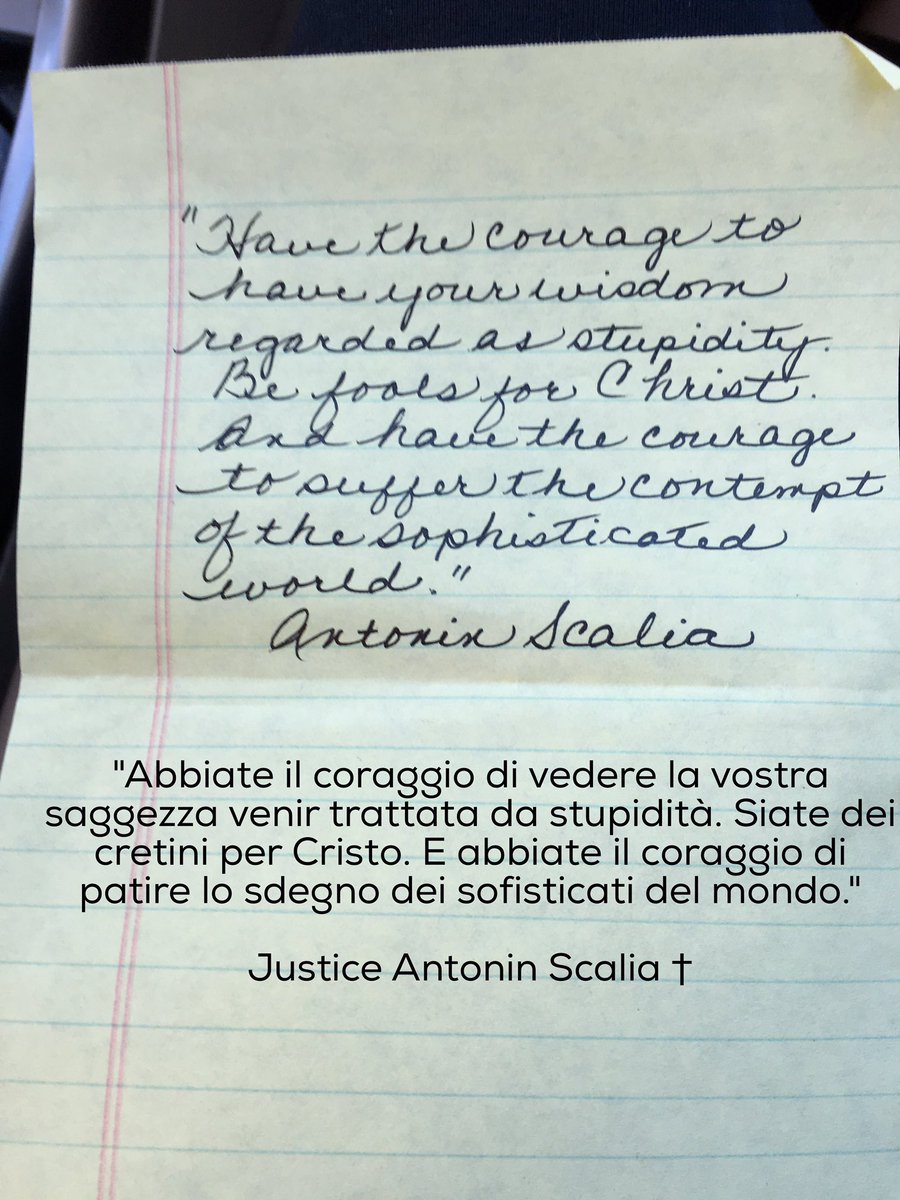 "Have the courage to
have your wisdom
regarded as stupidity.
Be fools for Christ.
And have the courage
to suffer the contempt
of the sophisticated
world."
Antonin Scalia
"Abbiate il coraggio di vedere la vostra
saggezza venir trattata da stupidità. Siate dei
cretini per Cristo. E abbiate il coraggio di
patire lo sdegno dei sofisticati del mondo."
Justice Antonin Scalia †